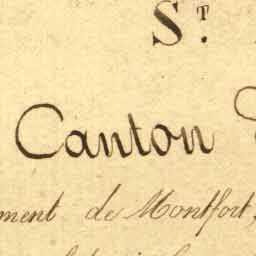 St.
Canton
ment de Montfort,